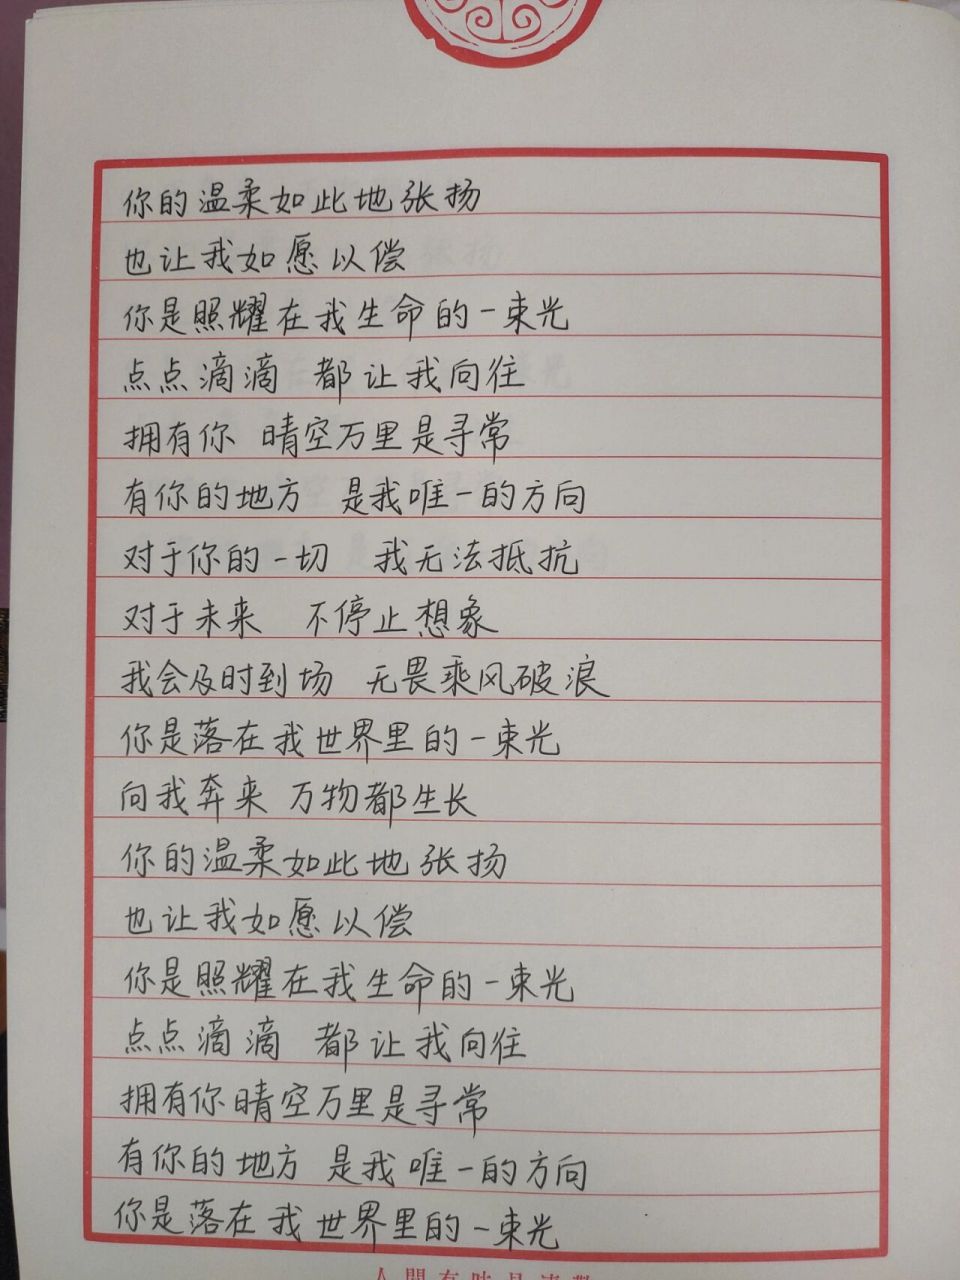 你的温柔如此地张扬
也让我如愿以偿
你是照耀在我生命的一束光
点点滴滴 都让我向往
拥有你 晴空万里是寻常
有你的地方 是我唯一的方向
对于你的一切 我无法抵抗
对于未来 不停止想象
我会及时到场 无畏乘风破浪
你是落在我世界里的一束光
向我奔来 万物都生长
你的温柔如此地张扬
也让我如愿以偿
你是照耀在我生命的一束光
点点滴滴 都让我向往
拥有你晴空万里是寻常
有你的地方 是我唯一的方向
你是落在我世界里的一束光
人間有味是清歡